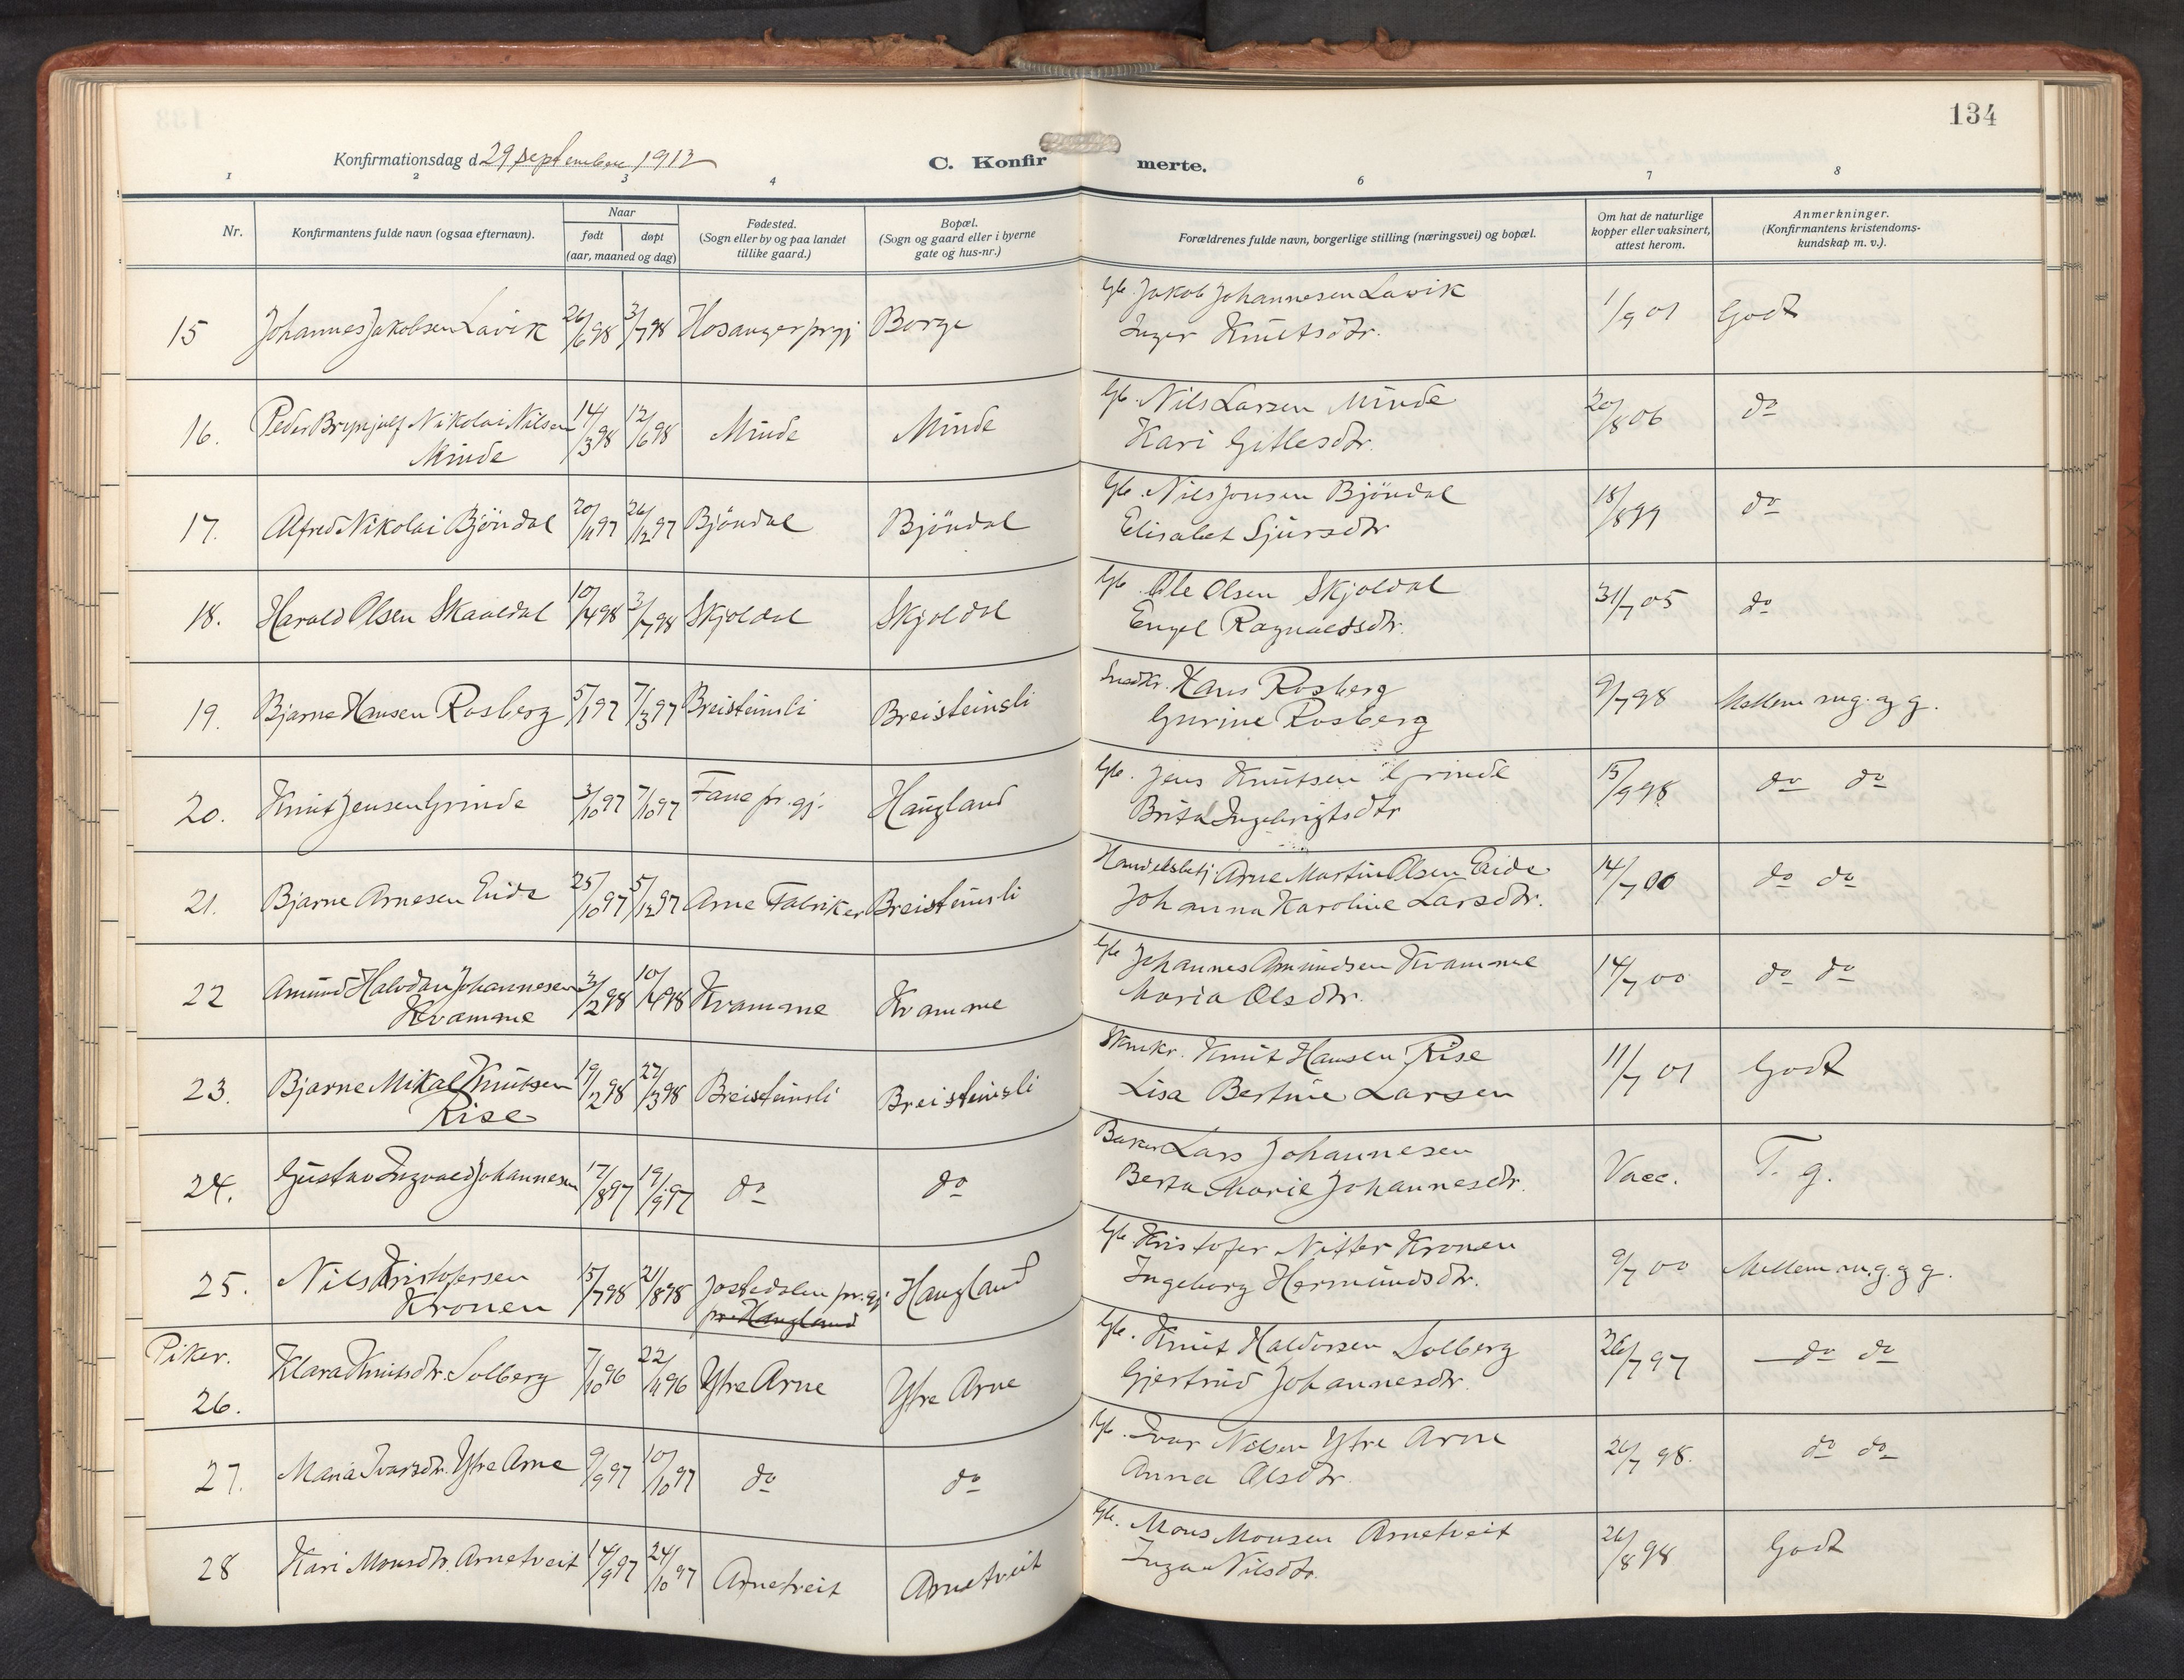 134
Konfirmationsdag d 29 september 1912
C. Konfirmerte.
1 2 3 4 6 7 8
Nr.
Konfirmantens fulde navn (ogsaa efternavn).
Naar
født døpt
(aar, maaned og dag)
Fødested.
(Sogn eller by og paa landet
tillike gaard.)
Bopæl.
(Sogn og gaard eller i byerne
gate og hus-nr.)
Forældrenes fulde navn, borgerlige stilling (næringsvei) og bopæl.
Om hat de naturlige
kopper eller vaksinert,
attest herom.
Anmerkninger.
(Konfirmantens kristendoms-
kundskap m. v.).
15 Johannes Jakobsen Lavik 26/6 98 3/7 98 Hosanger prgj Borge Gb. Jakob Johannesen Lavik 1/9 01 Godt
Inger Knutsdtr.
16. Peder Brynjulf Nikolai Nilsen 14/3 98 12/6 98 Minde Minde Gb. Nils Larsen Minde 20/8 06 do
Minde Kari Gitlesdtr.
17. Alfred Nikolai Bjöndal 20/11 97 26/12 97 Bjöndal Bjöndal Gb. Nils Jonsen Bjöndal 18/8 99 do
Elisabet Sjursdtr
18. Harald Olsen Skaaldal 10/4 98 3/7 98 Skjoldal Skjoldal Gb. Ole Olsen Skjoldal 31/7 05 do
Engel Ragnaldsdtr.
19. Bjarne Hansen Rosberg 5/1 97 7/3 97 Breisteinsli Breisteinsli Snedkr. Hans Rosberg 9/7 98 Mellem mg. og g.
Gurine Rosberg
20. Knut Jensen Grinde 3/10 97 7/10 97 Fane pr.gj. Haugland Gb. Jens Knutsen Grinde 15/9 98 do do
Brita Ingebrigtsdtr
21. Bjarne Arnesen Eide 25/10 97 5/12 97 Arne Fabriker Breisteinsli Handelsbetj. Arne Martin Olsen Eide 14/7 00 do do
Johanna Karoline Larsdtr.
22 Amund Halvdan Johannesen 3/2 98 10/4 98 Kvamme Kvamme Gb. Johannes Amundsen Kvamme 14/7 00 do do
Kvamme Maria Olsdtr.
23. Bjarne Mikal Knutsen 19/2 98 27/3 98 Breisteinsli Breisteinsli Skmkr. Knut Hansen Rise 11/7 01 Godt
Rise Lisa Bertine Larsen
24. Gustav Ingvald Johannesen 17/8 97 19/9 97 do do Baker Lars Johannesen Vacc. T. g.
Berta Marie Johannesdtr.
25. Nils Kristofersen 15/7 98 21/8 98 Jostedalen pr.gj Haugland Gb. Kristofer Nitter Kronen 9/7 00 Mellem m.g. og g.
Kronen pr Haugland Ingeborg Hermundsdtr.
Piker.
26. Klara Knutsdtr. Solberg 7/10 96 22/11 96 Ytre Arne Ytre Arne Gb. Knut Haldorsen Solberg 26/7 97 do do
Gjertrud Johannesdtr.
27. Maria Ivarsdtr. Ytre Arne 9/9 97 10/10 97 do do Gb. Ivar Nilsen Ytre Arne 26/7 98. do do
Anna Olsdtr.
28 Kari Monsdtr. Arnetveit 14/9 97 24/10 97 Arnetveit Arnetveit Gb. Mons Monsen Arnetveit 26/8 98 Godt
Inga Nilsdtr.